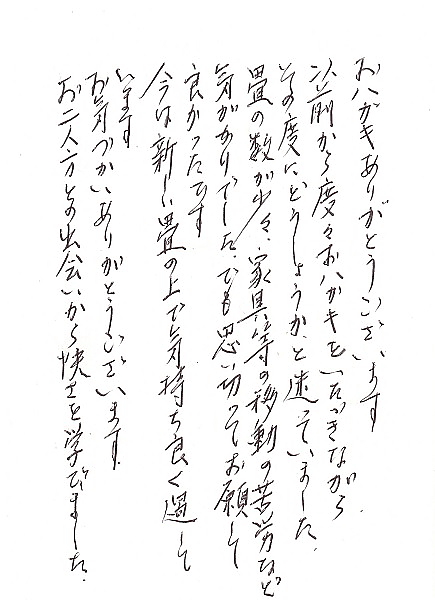 おハガキありがとうございます
以前から度々おハガキをいただきながら、
その度にどうしようか、と迷っていました。
畳の数が少々、家具等の移動の苦労など
気がかりでした、でも思い切ってお願して
良かったです
今は新しい畳の上で気持ち良く過して
います。
お気づかいありがとうございます。
お二人方との出会いから快さを学びました。